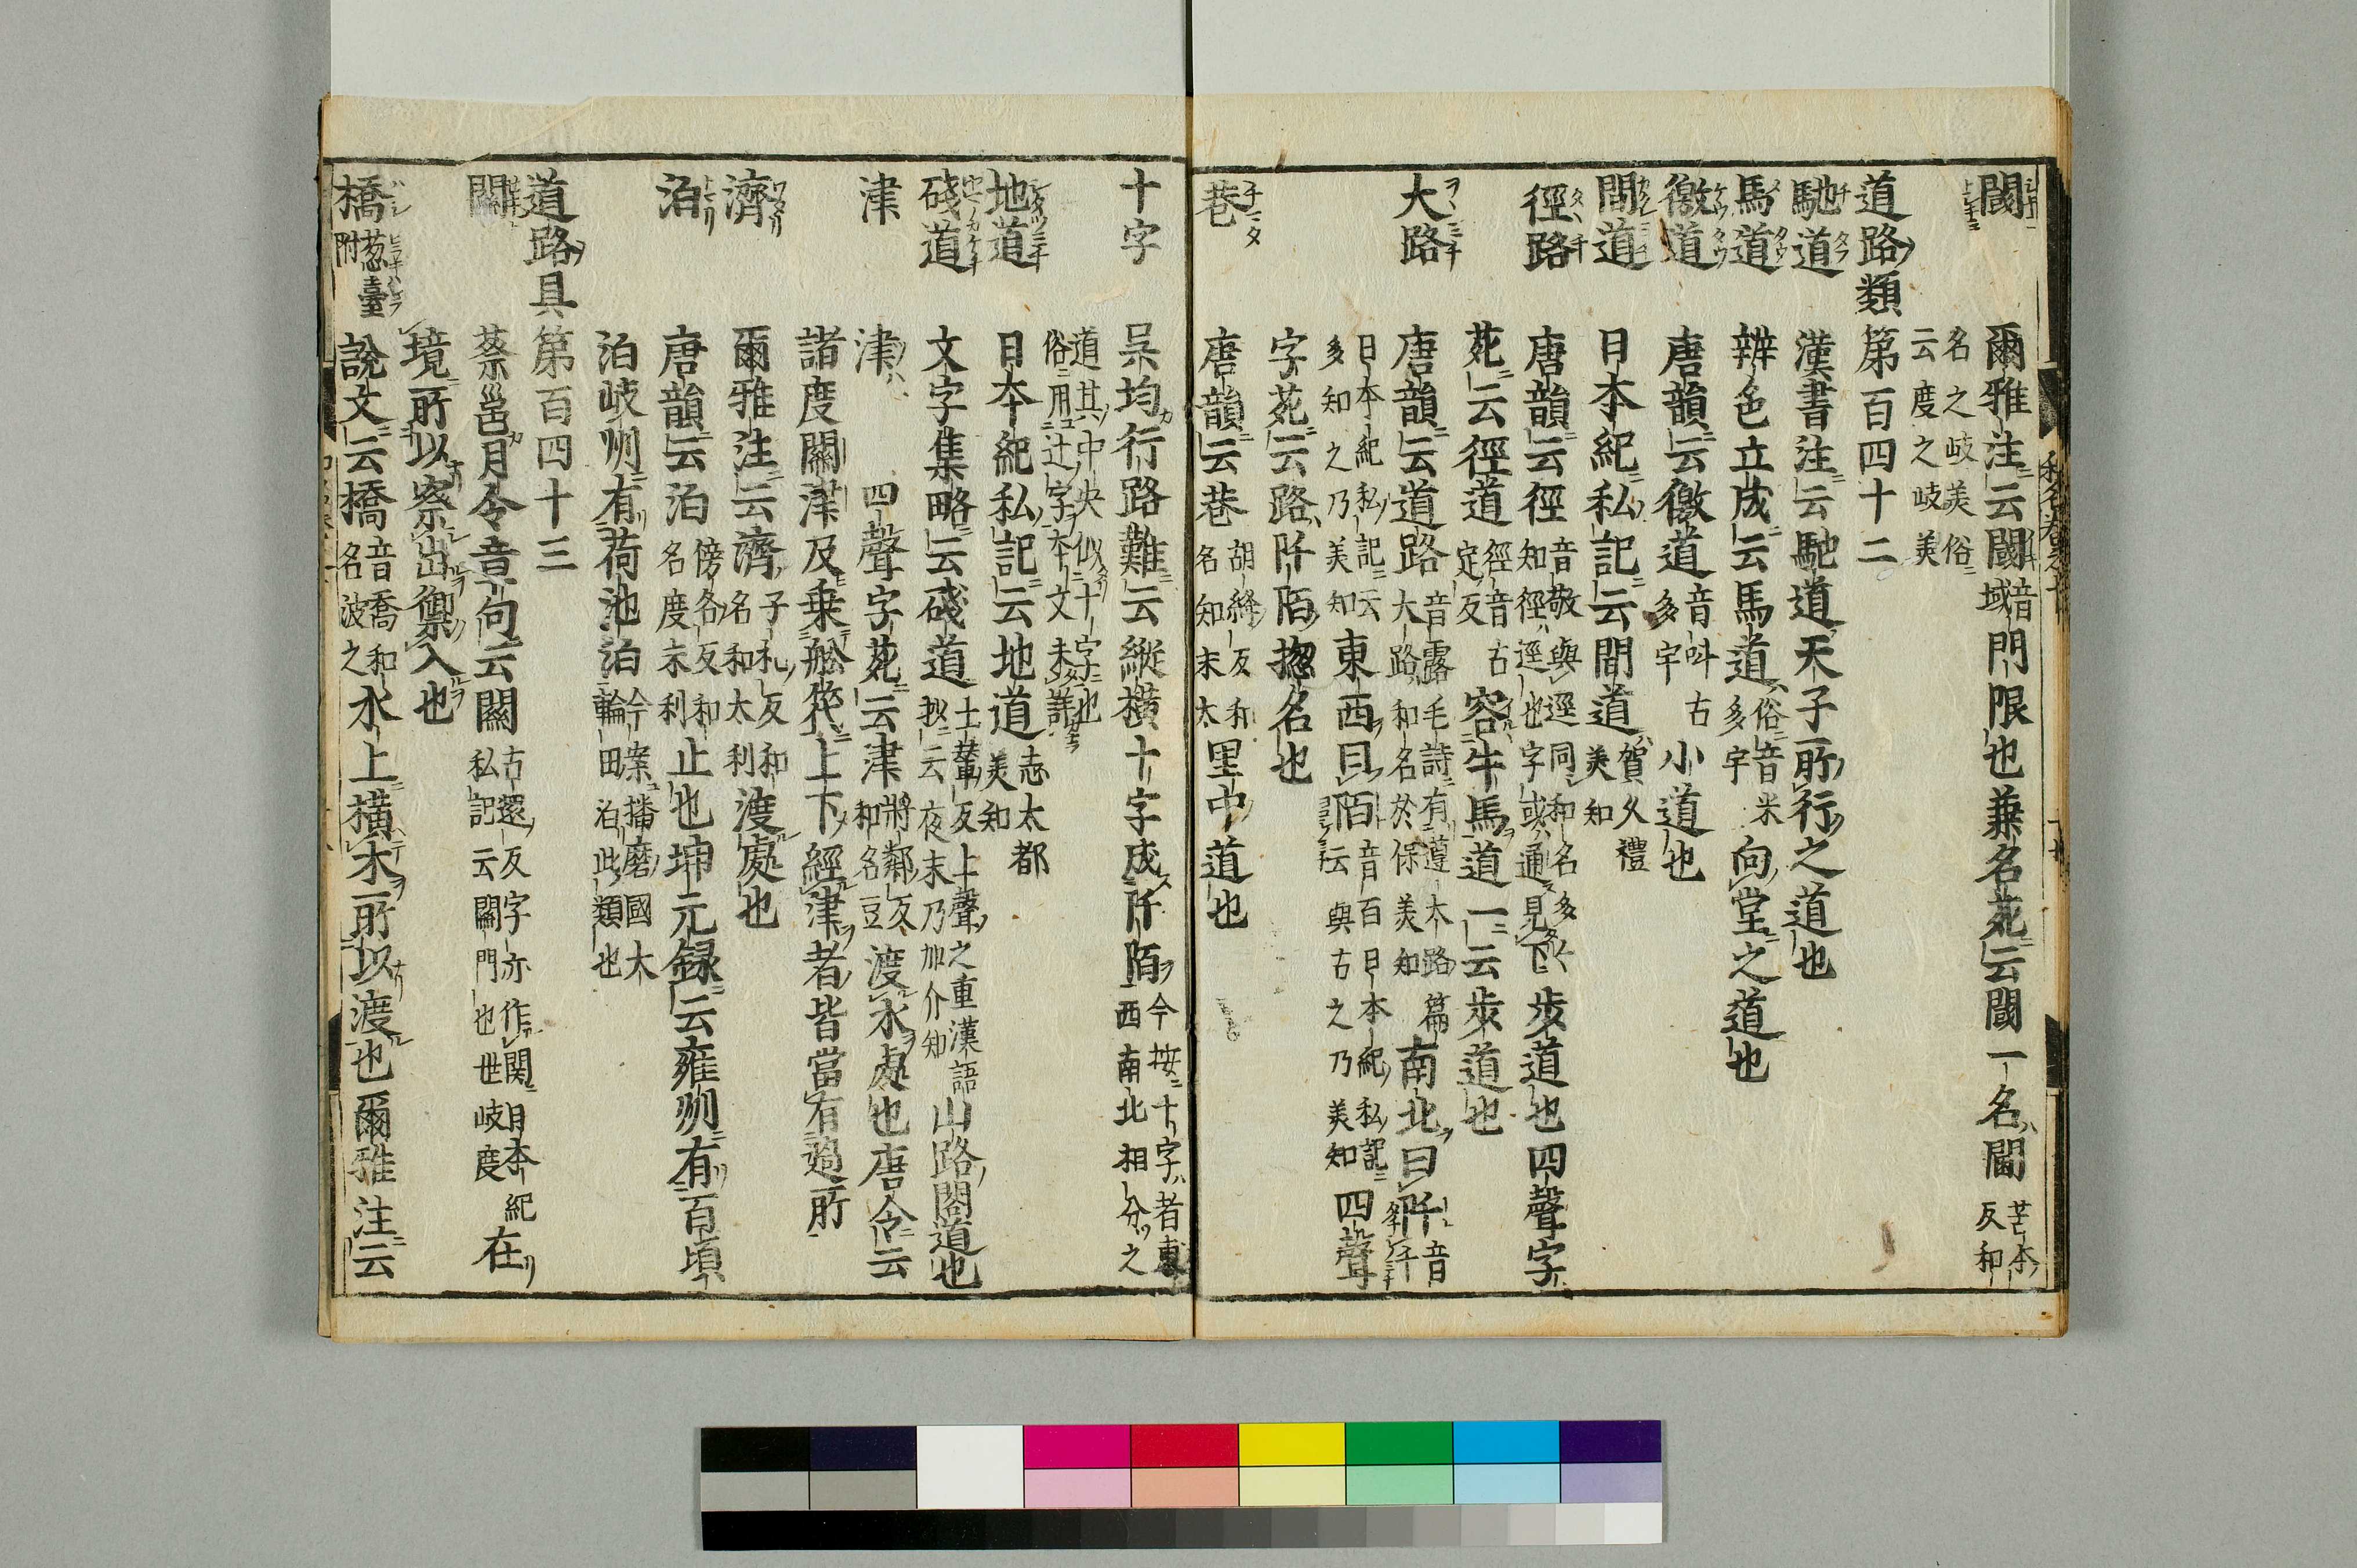 閾 爾雅注云閾音域門限也兼名苑云閾一名閫苦本反和
名之岐美俗云度之岐美
道路類第百四十二
馳道 漢書注云馳道天子所行之道也
馬道 辨色立成云馬道俗音米多宇向堂之道也
徼道 唐韻云徼道音叫古多宇小道也
間道 日本紀私記云間道賀久禮美知
徑路 唐韻云徑音敬與逕同和名多知徑逕也字或通見下步道也四聲字
苑云徑道徑音古定反容牛馬道一云步道也
大路 唐韻云道路音露毛詩有遵大路篇大路和名於保美知南北曰阡音千
日本紀私記云多知之乃美知東西曰陌音百日本紀私記云與古之乃美知四聲
字苑云路阡陌惣名也
巷 唐韻云巷胡絳反和名知末太里中道也
十字 吴均行路難云縱橫十字成阡陌今按十字者東西南北相分之
道其中央似十字也俗用辻字本文未詳
地道 日本紀私記云地道志太都美知
碊道 文字集略云碊道士輦反上聲之重漢語抄云夜末乃加介知山路閣道也
津 四聲字苑云津將鄰反和名豆渡水處也唐令云
津
諸度關津及乗舩筏上下經津者皆當有過所
濟 爾雅注云濟子礼反和名和太利渡處也
泊 唐韻云泊傍各反和名度末利止也坤元録云雍州有百頃
泊岐州有荷池泊今案播磨國大輪田泊此類也
道路具第百四十三
關 蔡邕月令章句云關古還反字亦作関日本紀私記云關門也世岐度在
境所以察出禦入也
橋 葱臺附 說文云橋音喬和名波之水上横木所以渡也爾雅注云